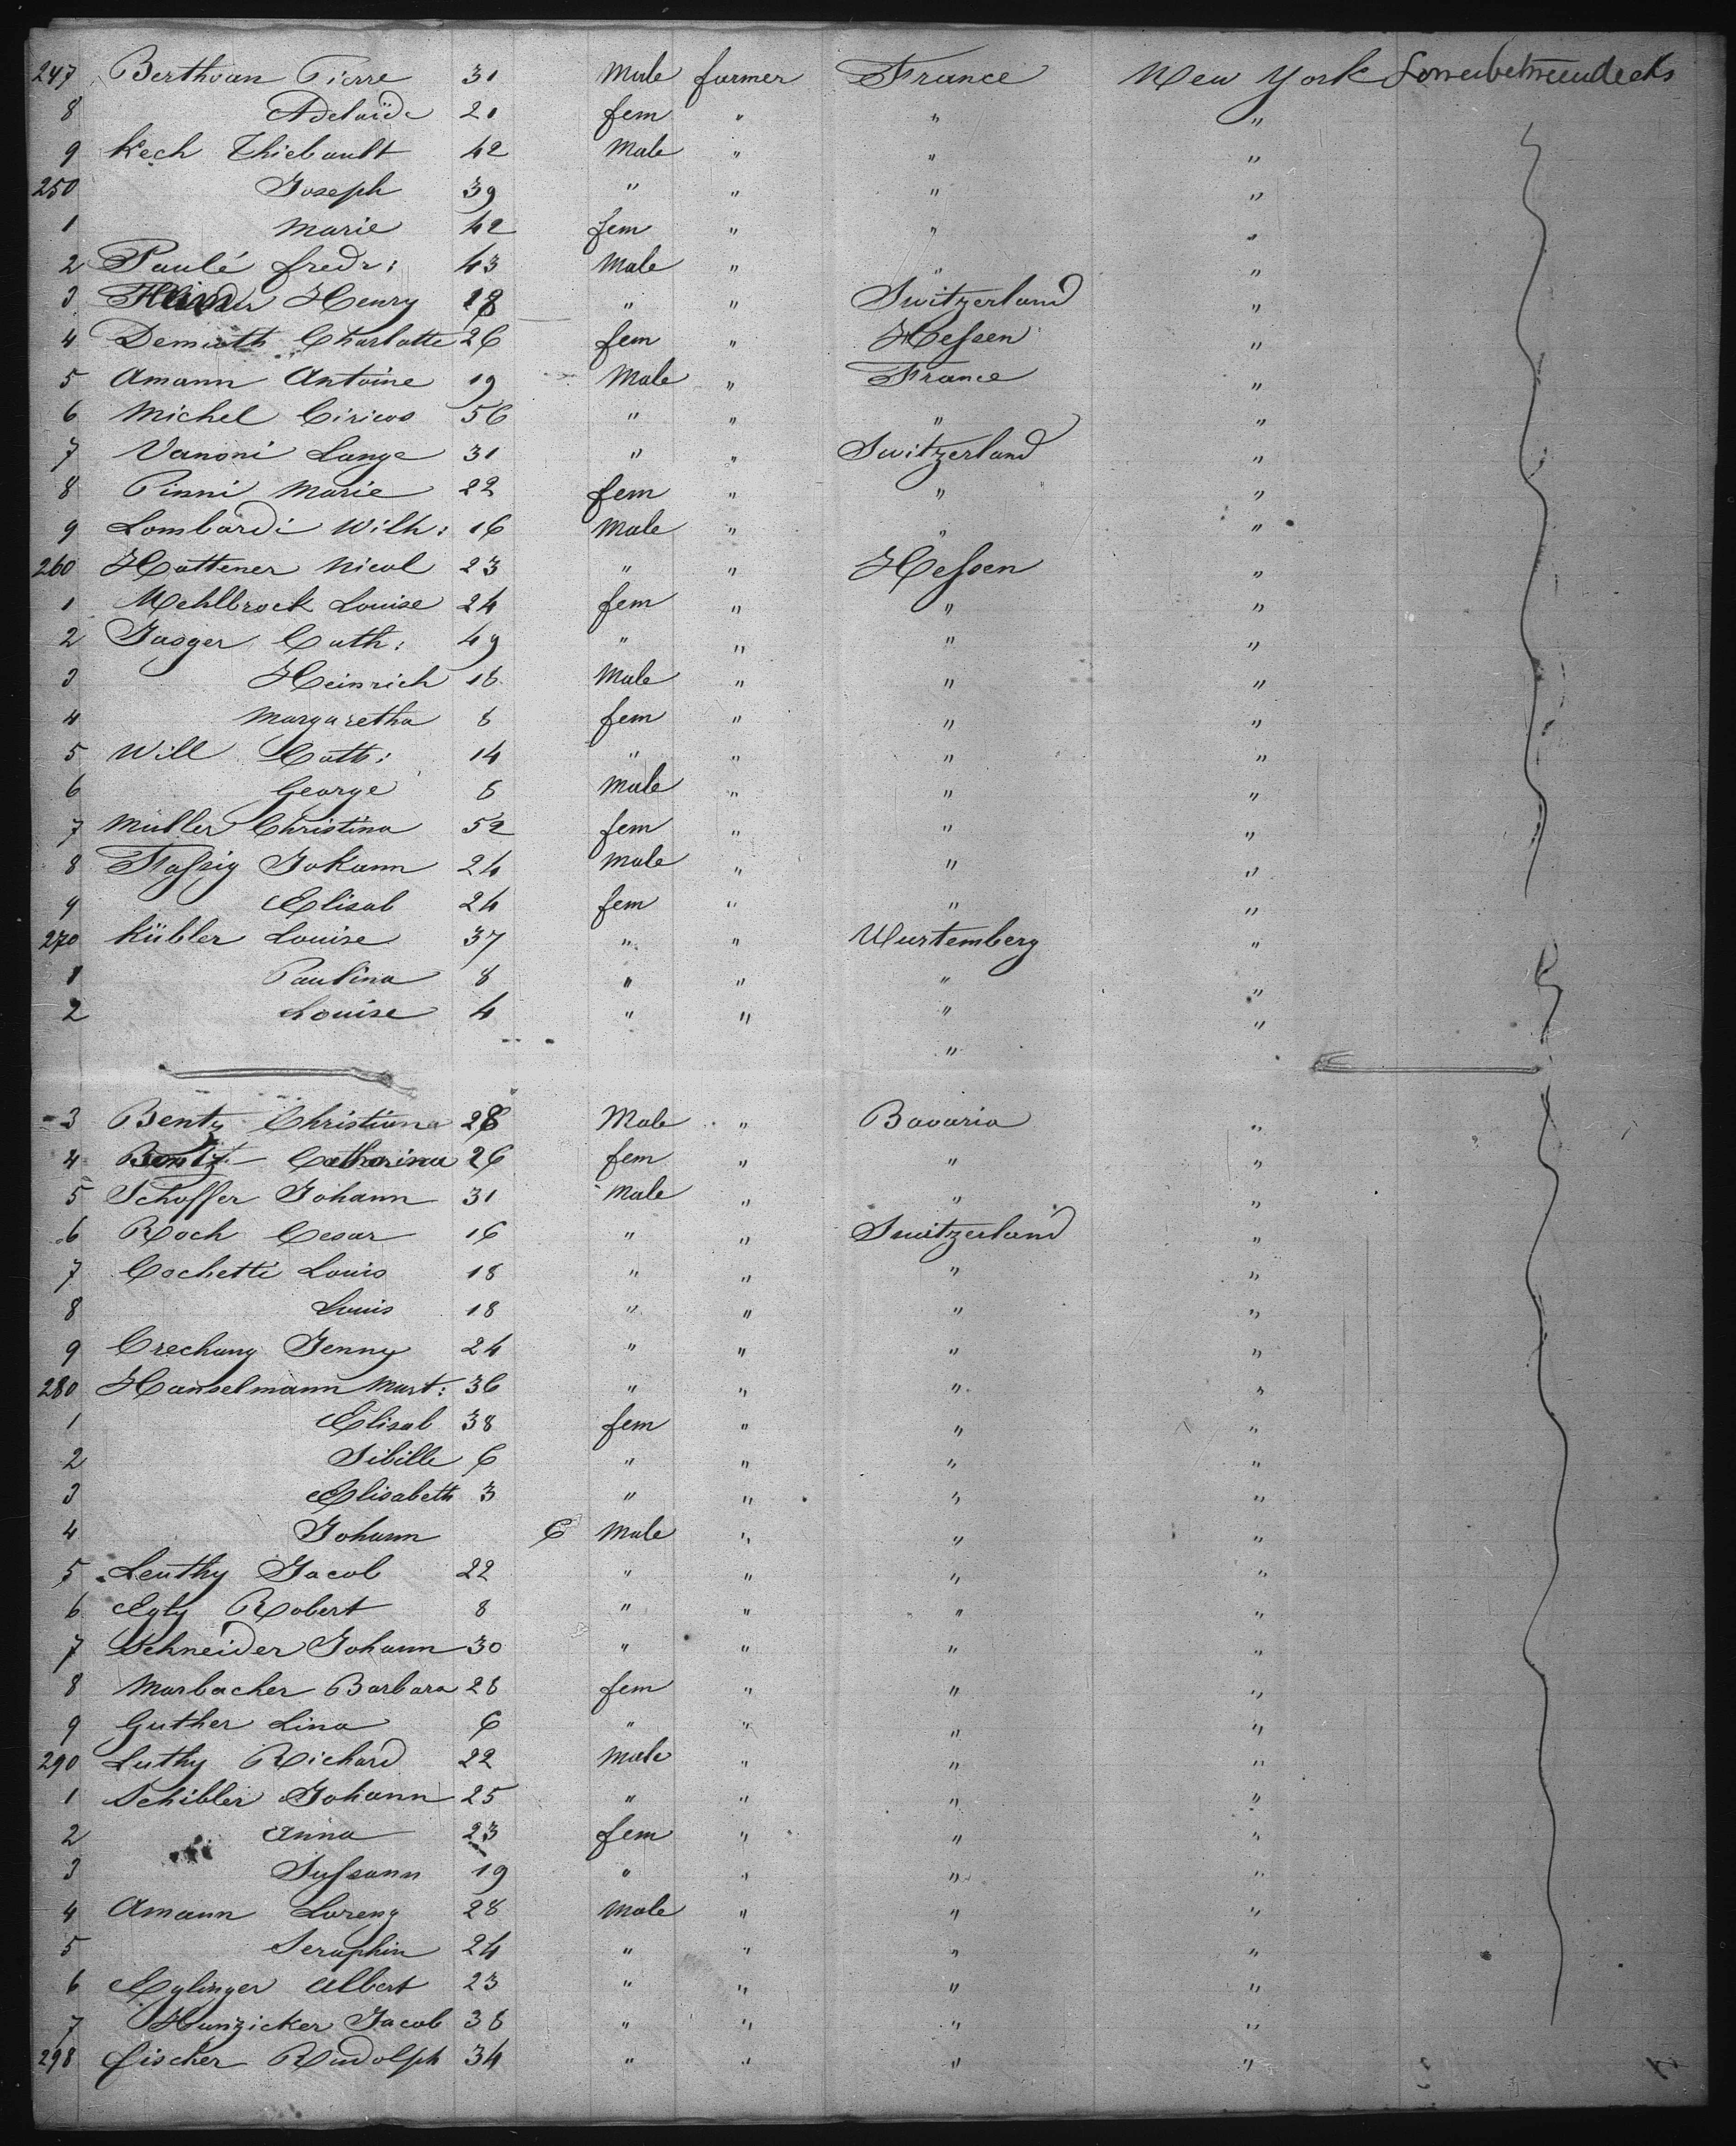 247 Berthoan Pierre 31 Male farmer France New York Lowerbetweendecks
8 Adelaïde 20 fem " " "
9 Kech Thiebault 42 Male " " "
250 Joseph 39 " " " "
1 Marie 42 fem " " "
2 Paulé fredr: 43 Male " " "
3 Henry 18 " " Switzerland "
4 Demuth Charlotte 26 fem " Hessen "
5 Amann Antoine 19 Male " France "
6 Michel Ciricos 56 " " " "
7 Vanoni Lange 31 " " Switzerland "
8 Pinni Marie 22 fem " " "
9 Lombardi Wilh: 16 Male " " "
260 Hattener Nicol 23 " " Hessen "
1 Mehlbrock Louise 24 fem " " "
2 Jaoger Cath: 49 " " " "
3 Heinrich 18 Male " " "
4 Margaretha 8 fem " " "
5 Will Cath: 14 " " " "
6 George 8 Male " " "
7 Muller Christina 52 fem " " "
8 Flassig Johann 24 Male " " "
9 Elisab 24 fem " " "
270 Kübler Louise 37 " " Wurtemberg "
1 Paulina 8 " " " "
2 Louise 4 " " " "
"
3 Bentz Christiana 28 Male " Bavaria "
4 Bentz Catharina 26 fem " " "
5 Schoffer Johann 31 Male " " "
6 Roch Cesar 16 " " Switzerland "
7 Cochetti Louis 18 " " " "
8 Louis 18 " " " "
9 Crechang Jenny 24 " " " "
280 Hanselmann Mart: 36 " " " "
1 Elisab 38 fem " " "
2 Sibille 6 " " " "
3 Elisabeth 3 " " " "
4 Johann 6 Male " " "
5 Leuthy Jacob 22 " " " "
6 Egly Robert 8 " " " "
7 Schneider Johann 30 " " " "
8 Marbacher Barbara 28 fem " " "
9 Guther Lina 6 " " " "
290 Luthy Richard 22 Male " " "
1 Schibler Johann 25 " " " "
2 Anna 23 fem " " "
3 Sussann 19 " " " "
4 Amann Lorenz 28 Male " " "
5 Seraphin 24 " " " "
6 Eglinger Albert 23 " " " "
7 Hunzicker Jacob 38 " " " "
298 fischer Rudolph 34 " " " "